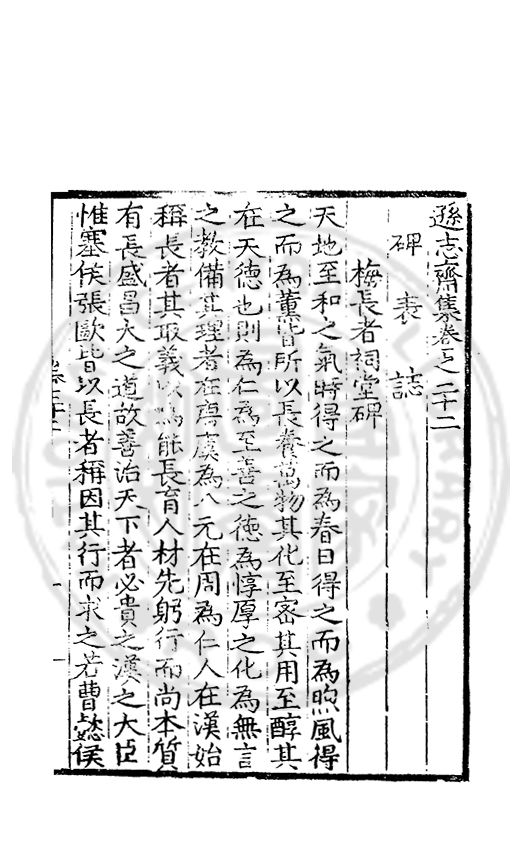 遜志齋集卷之二十二
碑 表 誌
梅長者祠堂碑
天地至和之氣時得之而為春日得之而為煦風得
之而為薰皆所以長養萬物其化至密其用至醇其
在天德也則為仁為至善之德為惇厚之化為無言
之教備其理者在唐虞為八元在周為仁人在漢始
稱長者其取義以為能長育人材先躬行而尚本質
有長盛昌大之道故善治天下者必貴之漢之大臣
惟塞侯張歐皆以長者稱因其行而求之若曹懿侯